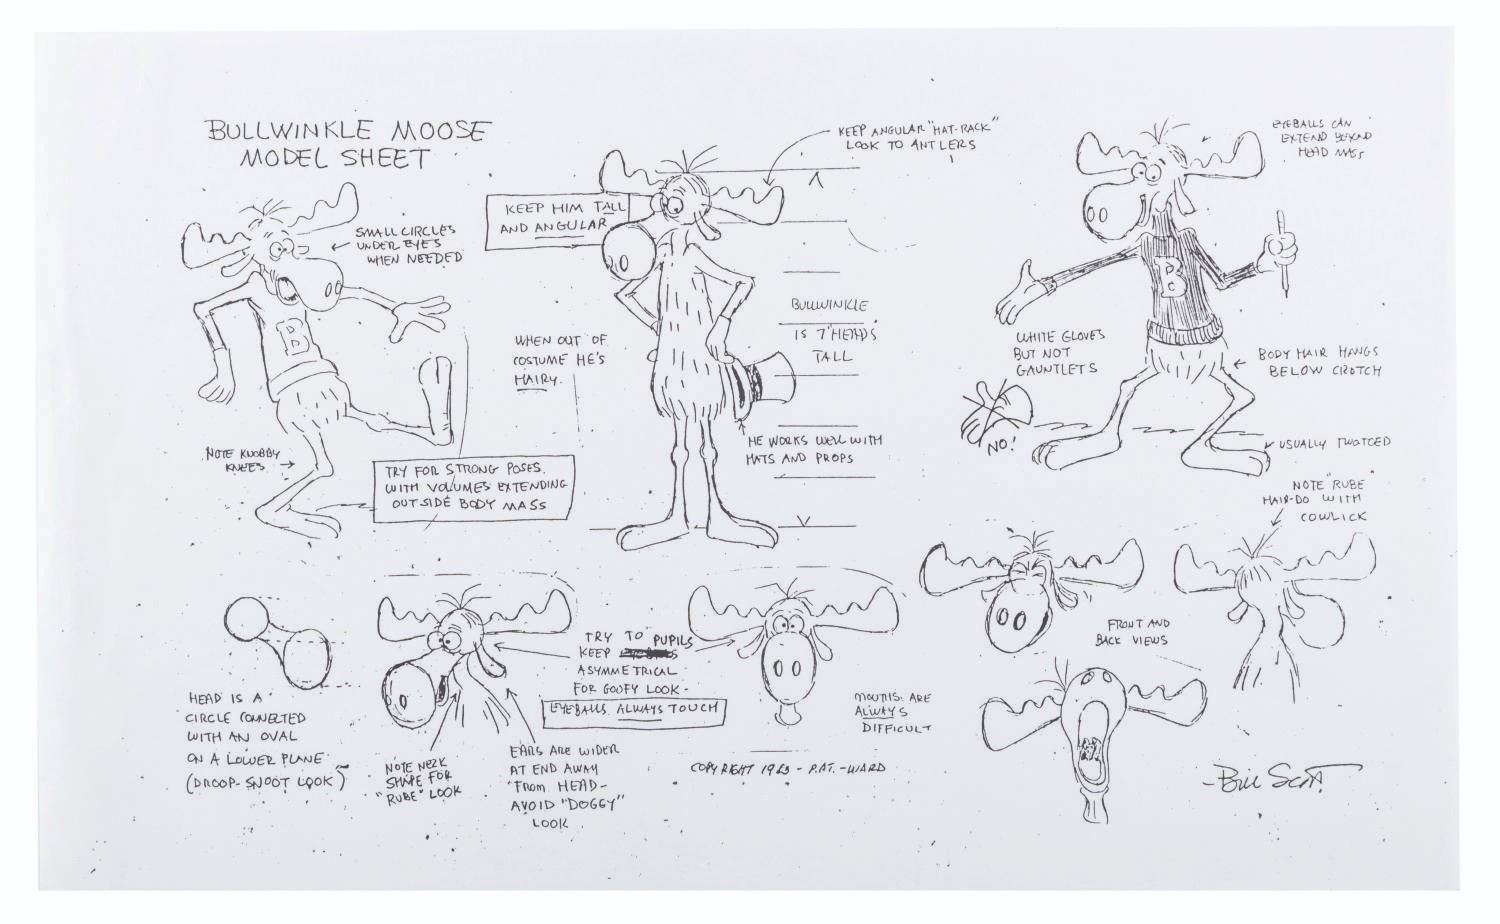 BULLWINKLE MOOSE
MODEL SHEET
SMALL CIRCLES
UNDER EYES
WHEN NEEDED
KEEP HIM TALL
AND ANGULAR
KEEP ANGULAR "HAT-RACK"
LOOK TO ANTLERS
EYEBALLS CAN
EXTEND BEYOND
HEAD MASS
B
B
WHEN OUT OF
COSTUME HE'S
HAIRY.
BULLWINKLE
IS 7 HEADS
TALL
WHITE GLOVES
BUT NOT
GAUNTLETS
NO!
BODY HAIR HANGS
BELOW CROTCH
NOTE KNOBBY
KNEES
TRY FOR STRONG POSES.
WITH VOLUMES EXTENDING
OUTSIDE BODY MASS
HE WORKS WELL WITH
HATS AND PROPS
USUALLY TWOTOED
NOTE "RUBE
HAIR-DO WITH
COWLICK
HEAD IS A
CIRCLE CONNECTED
WITH AN OVAL
ON A LOWER PLANE
(DROOP-SNOOT LOOK)
NOTE NECK
SHAPE FOR
"RUBE" LOOK
TRY TO PUPILS
KEEP
ASYMMETRICAL
FOR GOOFY LOOK-
EYEBALLS ALWAYS TOUCH
EARS ARE WIDER
AT END AWAY
FROM HEAD-
AVOID "DOGGY"
LOOK
FRONT AND
BACK VIEWS
MOUTHS ARE
ALWAYS
DIFFICULT
COPYRIGHT 1963 - P.AT.-WARD
-Bill Scott